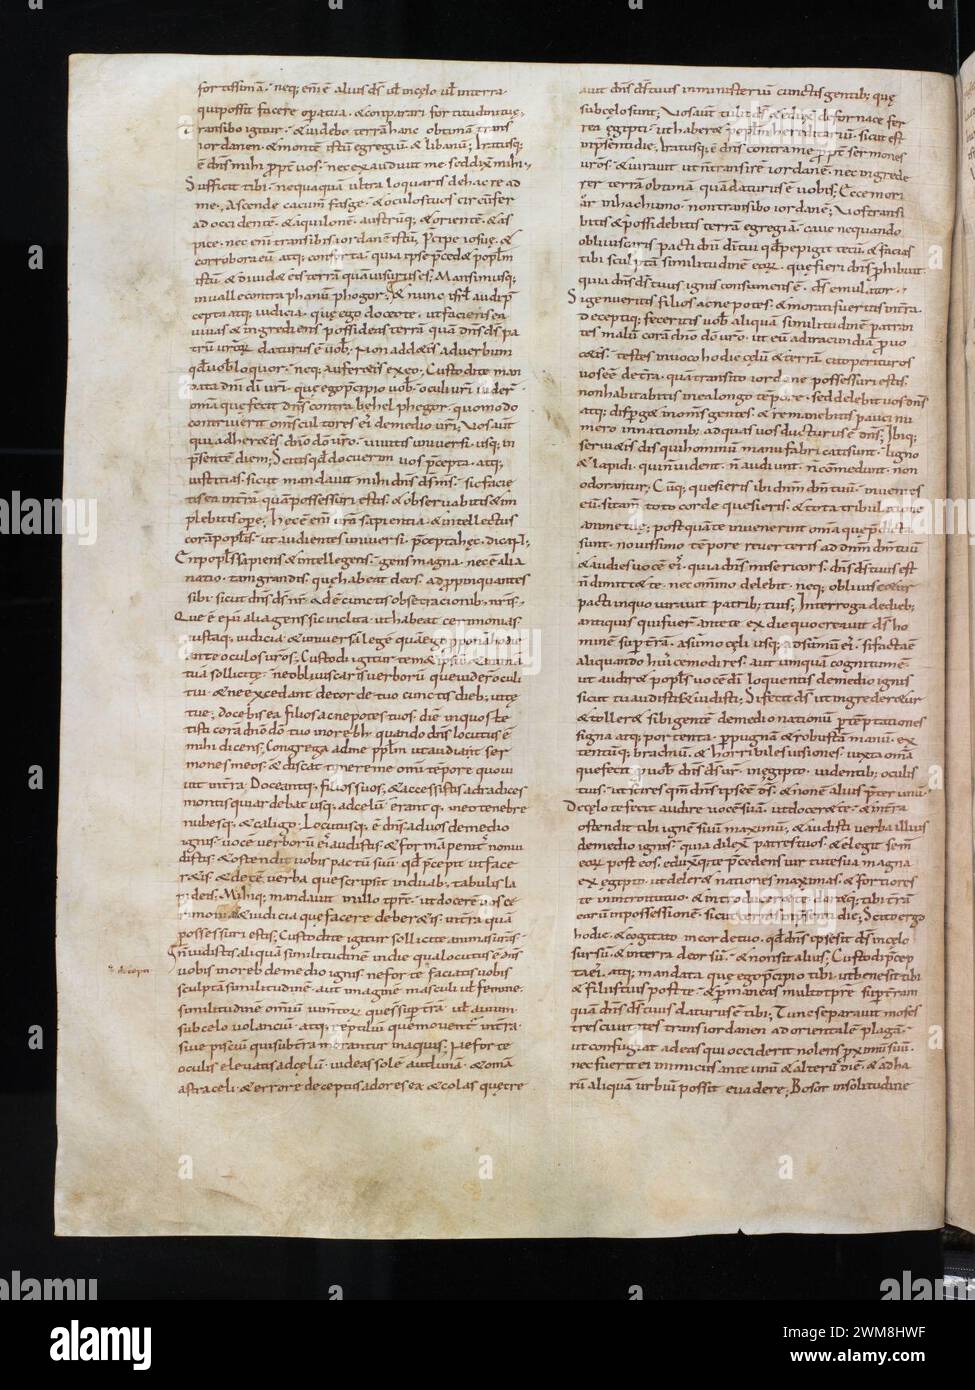 fortissimā · neq; eni ē alius ds ul incęlo ul interra ·
quipossit facere opera tua · & conparari fortitudini tuę;
Transibo igitur · & uidebo terrā hanc optimā trans
iordanen · & montē istū egregiū & libanū; Iratusq;
ē dns mihi ppt uos · nec exaudiuit me · sed dix mihi ·
Sufficit tibi · nequaquā ultra loquaris de hac re ad
me · Ascende cacum fasge · & oculos tuos circūfer
ad occidentē · & aquilonē · austrūq; & orientē · & as
pice · nec eni transibis iordanē istū; Pcipe iosuę · &
corrobora eū atq; conforta · quia ipse pcedet poplm
istū · & diuidet eis terrā quā uisurus es; Mansimusq;
inualle contra phanū phogor; & nunc isrl audi p
cepta atq; iudicia · quę ego doceo te · ut faciens ea
uiuas & ingrediens possideas terrā quā dns ds pa
trū urorū daturus ē uob; Non addetis ad uerbum
qd uob loquor · neq; auferetis ex eo; Custodite man
data dni di uri · quę ego pcipio uob · oculi uri uider
omā quę fecit dns contra behel phegor · quomodo
contriuerit oms cultores ei de medio uri; Vos aut
qui adheretis dno do uro · uiuitis uniuersi usq; in
psentē diem; Scitis qd docuerim uos pcepta · atq;
iustitias · sicut mandauit mihi dns ds ms · sic facie
tis ea interrā quā possessuri estis · & obseruabitis & im
plebitis ope; Hec ē eni ura sapientia · & intellectus
corā poplis · ut audientes uniuersi · pcepta hęc · dicant;
En popls sapiens & intellegens · gens magna · nec ē alia
natio · tam grandis · quę habeat deos · adpropinquantes
sibi · sicut dns ds nr · & dē cunctis obsecrationib; nris ·
Quę ē eni alia gens sic inclita · ut habeat cerimonias
iustaq; iudicia · & uniuersā legē quā ego pponā hodie
ante oculos uros; Custodi igitur temet ipsū · & animā
tuā sollicite · ne obliuiscaris uerborū quę uider oculi
tui · & ne excedant de corde tuo cunctis dieb; uitę
tuę; docebis ea filios ac nepotes tuos · diē inquo ste
tisti corā dno do tuo inoreb · quando dns locutus ē
mihi dicens; Congrega ad me pplm ut audiant ser
mones meos · & discat timere me omi tēpore quo ui
uit interā; Doceantq; filios suos; & accessistis ad radices
montis qui ardebat usq; ad celū · erantq; ineo tenebrę
nubesq; & caligo; Locutusq; ē dns ad uos de medio
ignis · uocē uerborū ei audistis · & formā penit non ui
distis; & ostendit uobis pactū suū · qd pcepit ut face
retis · & decē uerba quę scripsit induab; tabulis la
pideis; Mihiq; mandauit inillo tpre · ut docerē uos ce
rimonias & iudicia quę facere deberetis · interrā quā
possessuri estis; Custodite igitur sollicite animas uras ·
Ñ uidistis aliquā similitudinē indie qua locutus ē dns
uobis inoreb de medio ignis · ne forte faciatis uobis
sculptā similitudinē · aut imaginē masculi ul feminę ·
similitudinē omiū iumtorū quę s supr trā · ul auium
sub celo uolanciū · atq; reptiliū quę mouent interra ·
siue pisciū qui sub trā morantur in aquis; Ne forte
oculis eleuatis ad celū · uideas solē aut lunā · & omā
astra celi · & errore deceptus adores ea · & colas quę cre
auit dns ds tuus in ministeriū cunctis gentib; quę
sub celo sunt; Vos aut tulit dns & eduxit de fornace fer
rea egipti · ut haberet poplm hereditariū · sicut est
inpsenti die; Iratusq; ē dns contra me ppt sermones
uros · & iurauit ut n transirē iordanē · nec ingrede
rer terrā optimā quā daturus ē uobis; Ecce mori
ar in hac humo · non transibo iordanē; Vos transi
bitis & possidebitis terrā egregiā · caue nequando
obliuiscaris pacti dni di tui qd pepigit tecū · & facias
tibi sculptā similitudinē eorū · quę fieri dns phibuit ·
quia dns ds tuus ignis consumens ē · ds emulator ·
Si genueritis filios ac nepotes · & morati fueritis interra ·
Deceptiq; feceritis uob aliquā similitudinē patran
tes malū corā dno do uro · ut eū ad iracundiā prouo
cetis · testes inuoco hodie cęlū & terrā cito perituros
uos eē de tra · quā transito iordane possessuri estis ·
non habitabitis inea longo tēpore · sed delebit uos dns
atq; disperget inoms gentes · & remanebitis pauci nu
mero innationib; ad quas uos ducturus ē dns; Ibiq;
seruietis dis qui hominū manu fabricati sunt · ligno
& lapidi · qui n uident · n audiunt · n comedunt · non
odorantur; Cūq; quesieris ibi dnm dm tuū · inuenies
eū · si tam toto corde quesieris · & tota tribulatione
animę tuę; postquā te inuenerint omā quę pdicta
sunt · nouissimo tēpore reuerteris ad dnm dm tuū
& audies uocē ei · quia dns misericors dns ds tuus est
n dimittet te · nec omnino delebit · neq; obliuiscetur
pacti inquo iurauit patrib; tuis; Interroga de dieb;
antiquis qui fuer ante te ex die quo creauit ds ho
minē supr trā · a sumo celi usq; ad sumū ei · si facta ē
aliquando huicemodi res · aut umquā cognitum ē ·
ut audiret popls uocē di loquentis de medio ignis
sicut tu audisti & uidisti; Si fecit ds ut ingrederetur
& tolleret sibi gentē de medio nationū p tēptationes
signa atq; portenta · p pugnā & robustā manū · ex
tentūq; brachiū · & horribiles uisiones · iuxta omā
quę fecit p uob dns ds ur · inęgipto · uidentib; oculis
tuis · ut scires qm dns ipse ē ds · & non ē alius pter unū ·
De celo te fecit audire uocē suā · ut doceret te · & interra
ostendit tibi ignē suū maximū; & audisti uerba illius
de medio ignis · quia dilex patres tuos · & elegit sem
eorū post eos; eduxitq; te pcedens uirtute sua magna
ex egipto · ut deleret nationes maximas · & fortiores
te inintroitu tuo · & introduceret te · daretq; tibi trā
earū inpossessionē · sicut cernis inpsenti die; Scito ergo
hodie · & cogitato incorde tuo · qd dns ipse sit ds incelo
sursū · & interra deorsū · & non sit alius; Custodi pcep
ta ei · atq; mandata quę ego pcipio tibi · ut bene sit tibi
& filiis tuis post te · & pmaneas multo tpre supr trām
quā dns ds tuus daturus ē tibi; Tunc separauit moses
tres ciuitates trans iordanen ad orientalē plagā ·
ut confugiat ad eas qui occiderit nolens pximū suū ·
nec fuerit ei inimicus ante unū & alterū diē · & ad ha
rū aliquā urbiū possit euadere; Bosor insolitudine
alamy
Image ID: 2WM8HWF
www.alamy.com